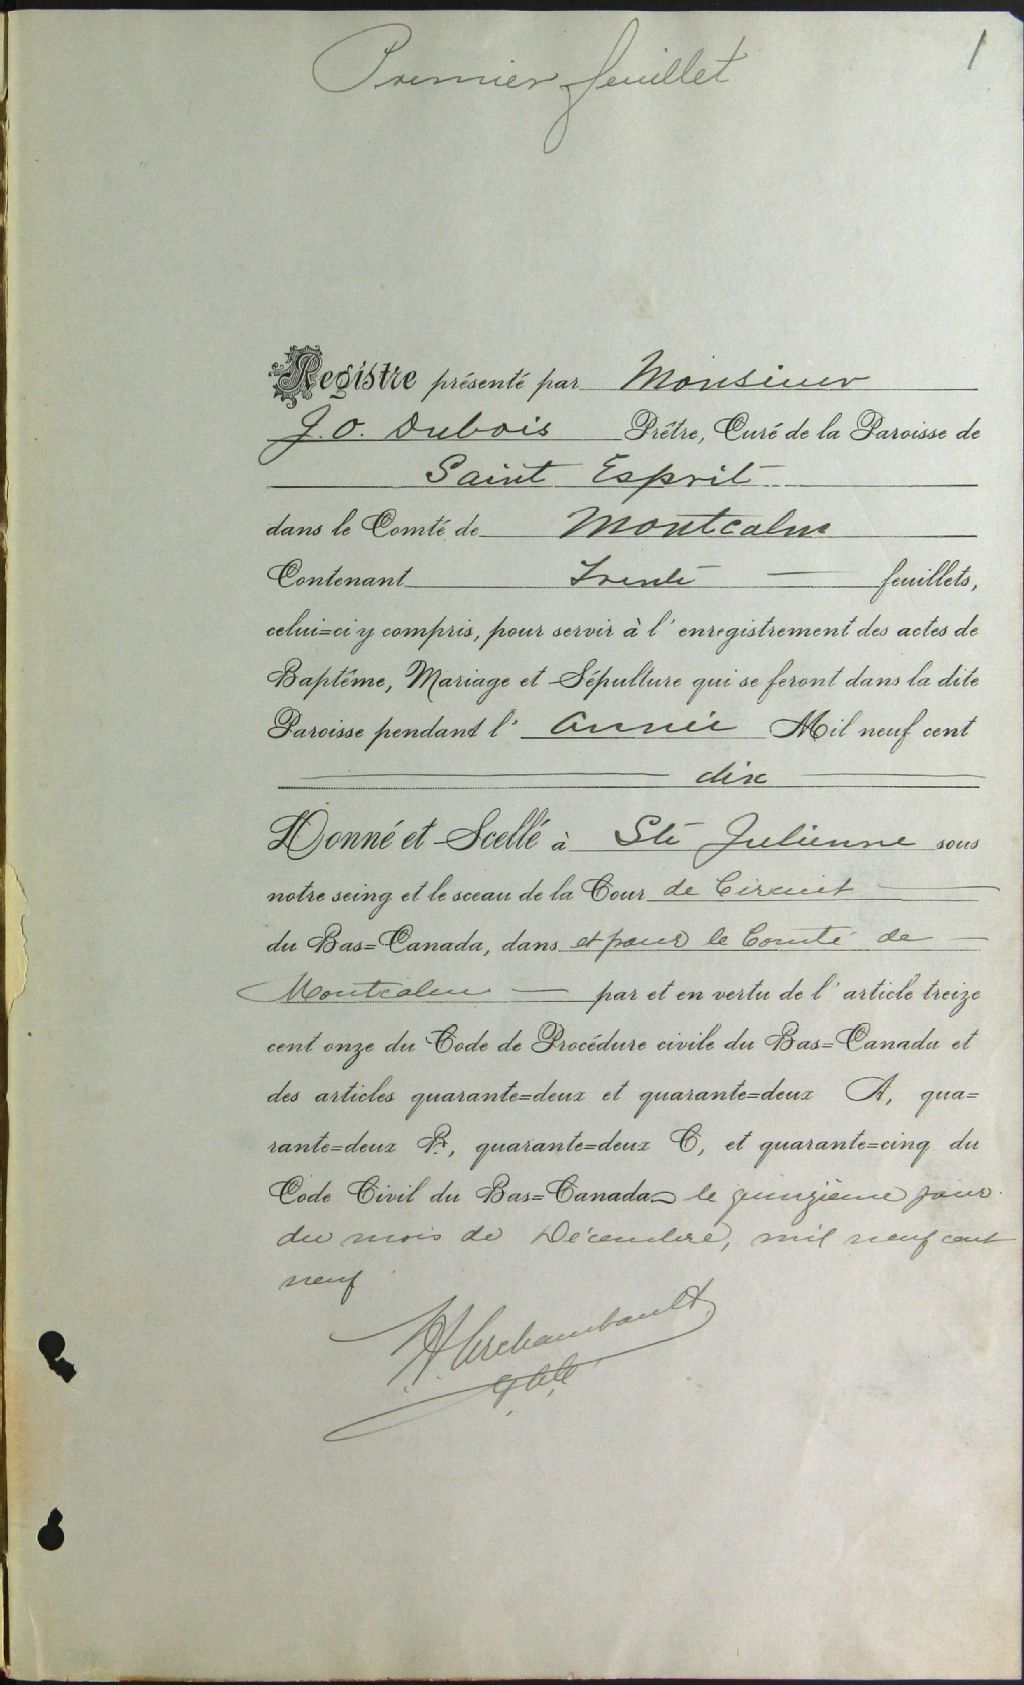 Premier feuillet
1
Registre présenté par Monsieur
J. O. Dubois Prêtre, Curé de la Paroisse de
Saint Esprit
dans le Comté de Montcalm
Contenant Trente feuillets,
celui=ci y compris, pour servir à l'enregistrement des actes de
Baptême, Mariage et Sépulture qui se feront dans la dite
Paroisse pendant l'année Mil neuf cent
dix
Donné et Scellé à Ste Julienne sous
notre seing et le sceau de la Cour de Circuit
du Bas=Canada, dans et pour le Comté de
Montcalm par et en vertu de l'article treize
cent onze du Code de Procédure civile du Bas=Canada et
des articles quarante=deux et quarante=deux A, qua=
rante=deux B, quarante=deux C, et quarante=cinq du
Code Civil du Bas=Canada le quinzième jour
du mois de Décembre, mil neuf cent
neuf
Archambault